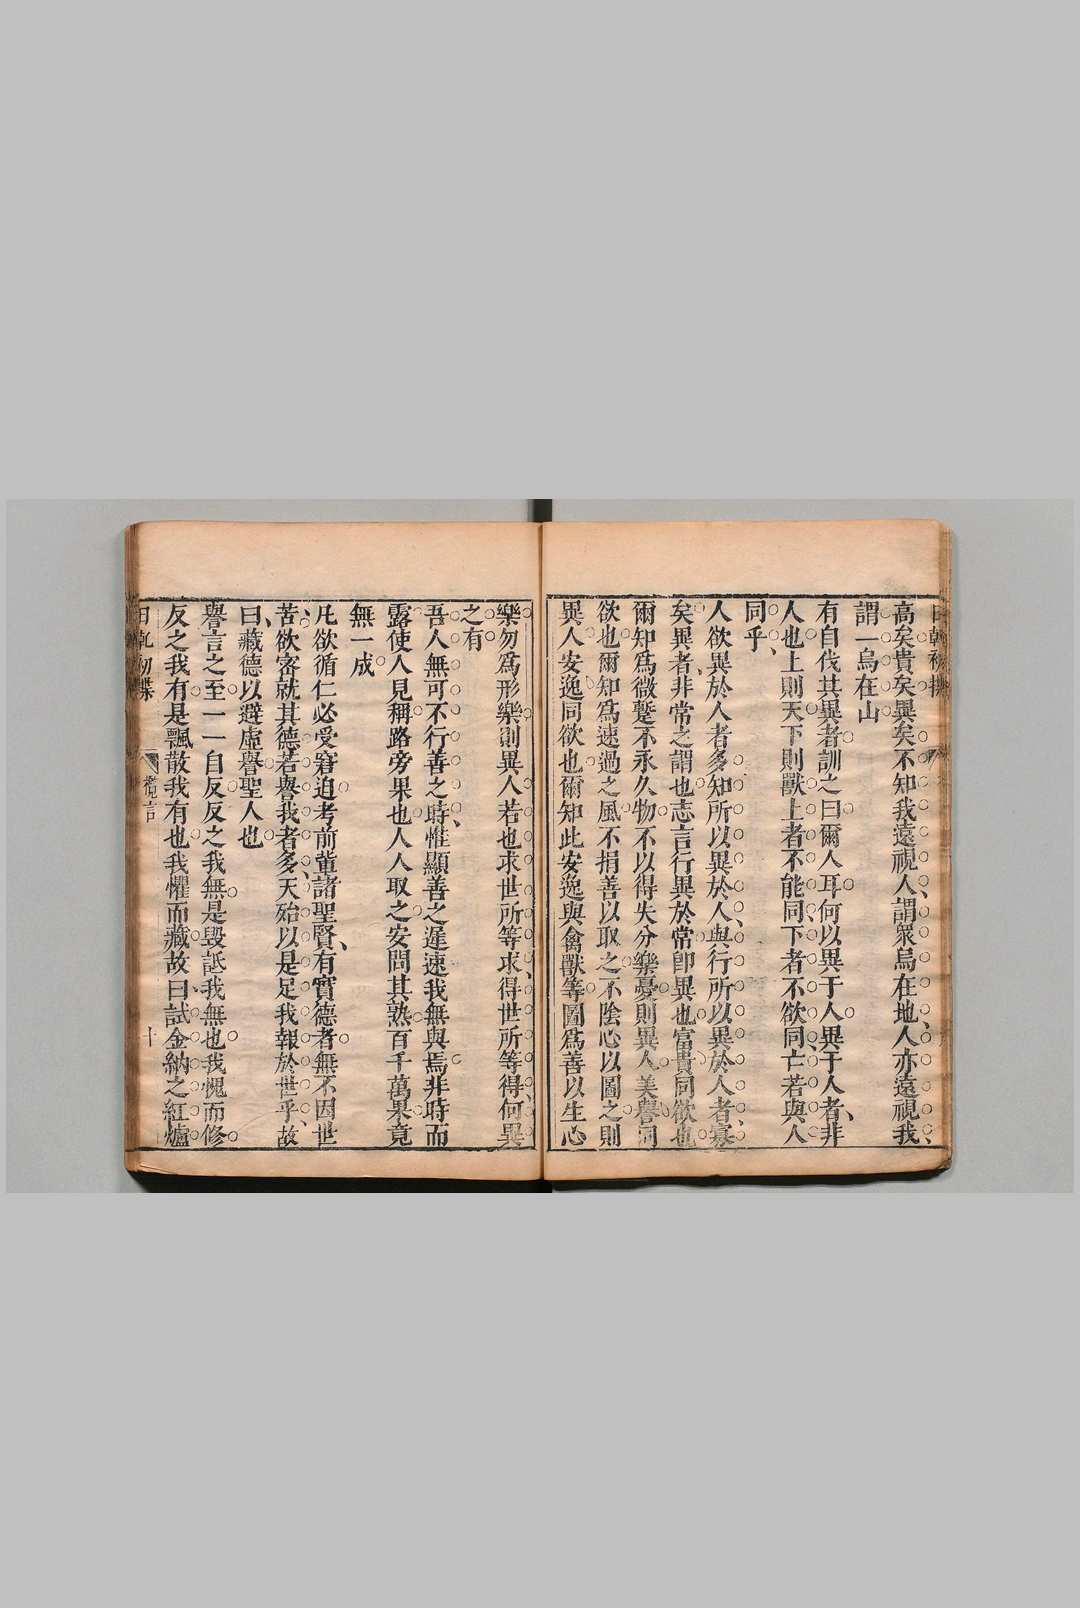 高矣貴矣異矣不知我遠視人謂衆烏在地人亦遠視我
謂一烏在山
有自伐其異者訓之曰爾人耳何以異于人異于人者非
人也上則天下則獸上者不能同下者不欲同亡若與人
同乎
人欲異於人者多知所以異於人與行所以異於人者寡
矣異者非常之謂也志言行異於常卽異也富貴同欲也
爾知爲微蹔不永久物不以得失分樂憂則異人美譽同
欲也爾知爲速過之風不捐善以取之不陰心以圖之則
異人安逸同欲也爾知此安逸與禽獸等圖爲善以生心
樂勿爲形樂則異人若也求世所等求得世所等得何異
之有
吾人無可不行善之時惟顯善之遲速我無與焉非時而
露使人見稱路旁果也人人取之安問其熟百千萬果竟
無一成
凡欲循仁必受窘迫考前輩諸聖賢有實德者無不因世
苦欲密就其德若譽我者多天殆以是足我報於世乎故
曰藏德以避虛譽聖人也
譽言之至一一自反反之我無是毀詆我無也我愧而修
反之我有是飄散我有也我懼而藏故曰試金納之紅爐
日乾初揲
言
十